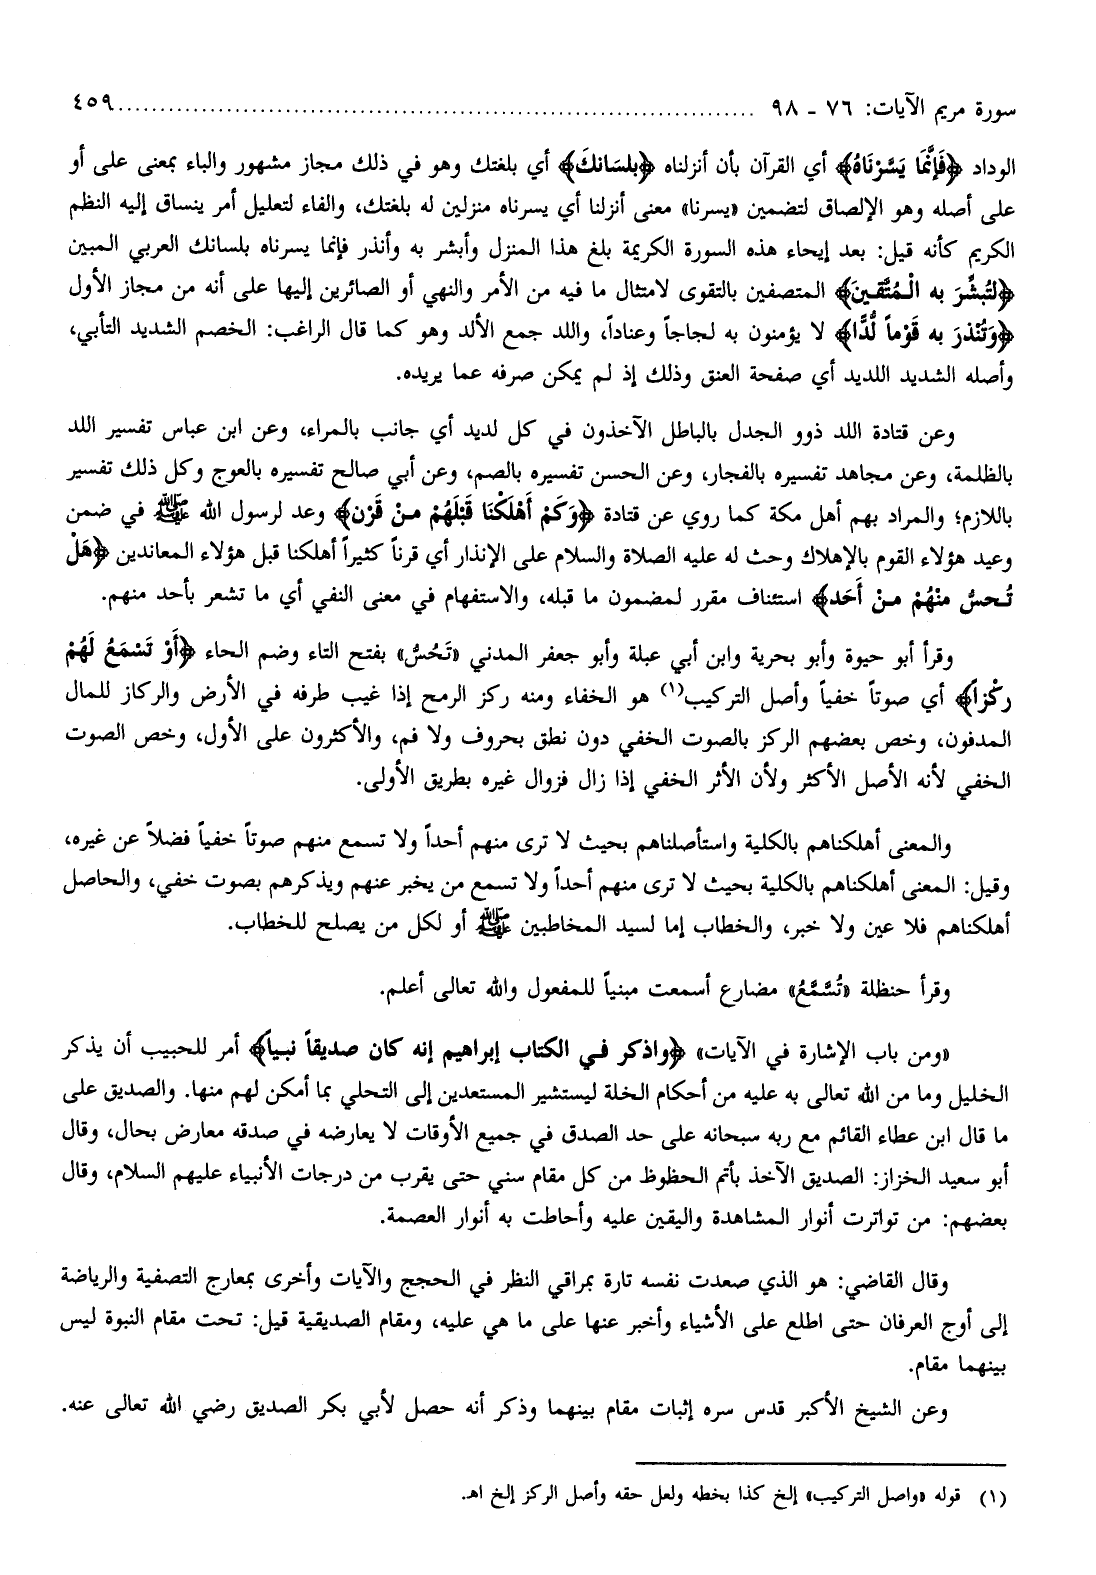 سورة مريم الآيات: ٧٦ ـ ٩٨ ........................................ ٤٥٩
الوداد ﴿فَإِنَّمَا يَسَّرْنَاهُ﴾ أي القرآن بأن أنزلناه ﴿بلسَانكَ﴾ أي بلغتك وهو في ذلك مجاز مشهور والباء بمعنى على أو
على أصله وهو الإلصاق لتضمين «يسرنا» معنى أنزلنا أي يسرناه منزلين له بلغتك، والفاء لتعليل أمر ينساق إليه النظم
الكريم كأنه قيل: بعد إيحاء هذه السورة الكريمة بلغ هذا المنزل وأبشر به وأنذر فإنما يسرناه بلسانك العربي المبين
﴿لتُبَشِّرَ به الْمُتَّقينَ﴾ المتصفين بالتقوى لامتثال ما فيه من الأمر والنهي أو الصائرين إليها على أنه من مجاز الأول
﴿وَتُنْذرَ به قَوْماً لُّدًّا﴾ لا يؤمنون به لجاجاً وعناداً، واللد جمع الألد وهو كما قال الراغب: الخصم الشديد التأبي،
وأصله الشديد اللديد أي صفحة العنق وذلك إذ لم يمكن صرفه عما يريده.
وعن قتادة اللد ذوو الجدل بالباطل الآخذون في كل لديد أي جانب بالمراء، وعن ابن عباس تفسير اللد
بالظلمة، وعن مجاهد تفسيره بالفجار، وعن الحسن تفسيره بالصم، وعن أبي صالح تفسيره بالعوج وكل ذلك تفسير
باللازم؛ والمراد بهم أهل مكة كما روي عن قتادة ﴿وَكَمْ أَهْلَكْنَا قَبْلَهُمْ منْ قَرْن﴾ وعد لرسول الله ﷺ في ضمن
وعيد هؤلاء القوم بالإهلاك وحث له عليه الصلاة والسلام على الإنذار أي قرناً كثيراً أهلكنا قبل هؤلاء المعاندين ﴿هَلْ
تُحسُّ منْهُمْ منْ أَحَد﴾ استئناف مقرر لمضمون ما قبله، والاستفهام في معنى النفي أي ما تشعر بأحد منهم.
وقرأ أبو حيوة وأبو بحرية وابن أبي عبلة وأبو جعفر المدني «تَحُسُّ» بفتح التاء وضم الحاء ﴿أَوْ تَسْمَعُ لَهُمْ
ركْزاً﴾ أي صوتاً خفياً وأصل التركيب(١) هو الخفاء ومنه ركز الرمح إذا غيب طرفه في الأرض والركاز للمال
المدفون، وخص بعضهم الركز بالصوت الخفي دون نطق بحروف ولا فم، والأكثرون على الأول، وخص الصوت
الخفي لأنه الأصل الأكثر ولأن الأثر الخفي إذا زال فزوال غيره بطريق الأولى.
والمعنى أهلكناهم بالكلية واستأصلناهم بحيث لا ترى منهم أحداً ولا تسمع منهم صوتاً خفياً فضلاً عن غيره،
وقيل: المعنى أهلكناهم بالكلية بحيث لا ترى منهم أحداً ولا تسمع من يخبر عنهم ويذكرهم بصوت خفي، والحاصل
أهلكناهم فلا عين ولا خبر، والخطاب إما لسيد المخاطبين ﷺ أو لكل من يصلح للخطاب.
وقرأ حنظلة «تُسَّمَّعُ» مضارع أسمعت مبنياً للمفعول والله تعالى أعلم.
«ومن باب الإشارة في الآيات» ﴿واذكر في الكتاب إبراهيم إنه كان صديقاً نبياً﴾ أمر للحبيب أن يذكر
الخليل وما من الله تعالى به عليه من أحكام الخلة ليستشير المستعدين إلى التحلي بما أمكن لهم منها. والصديق على
ما قال ابن عطاء القائم مع ربه سبحانه على حد الصدق في جميع الأوقات لا يعارضه في صدقه معارض بحال، وقال
أبو سعيد الخزاز: الصديق الآخذ بأتم الحظوظ من كل مقام سني حتى يقرب من درجات الأنبياء عليهم السلام، وقال
بعضهم: من تواترت أنوار المشاهدة واليقين عليه وأحاطت به أنوار العصمة.
وقال القاضي: هو الذي صعدت نفسه تارة بمراقي النظر في الحجج والآيات وأخرى بمعارج التصفية والرياضة
إلى أوج العرفان حتى اطلع على الأشياء وأخبر عنها على ما هي عليه، ومقام الصديقية قيل: تحت مقام النبوة ليس
بينهما مقام.
وعن الشيخ الأكبر قدس سره إثبات مقام بينهما وذكر أنه حصل لأبي بكر الصديق رضي الله تعالى عنه.
(١) قوله «واصل التركيب» إلخ كذا بخطه ولعل حقه وأصل الركز إلخ اهـ.